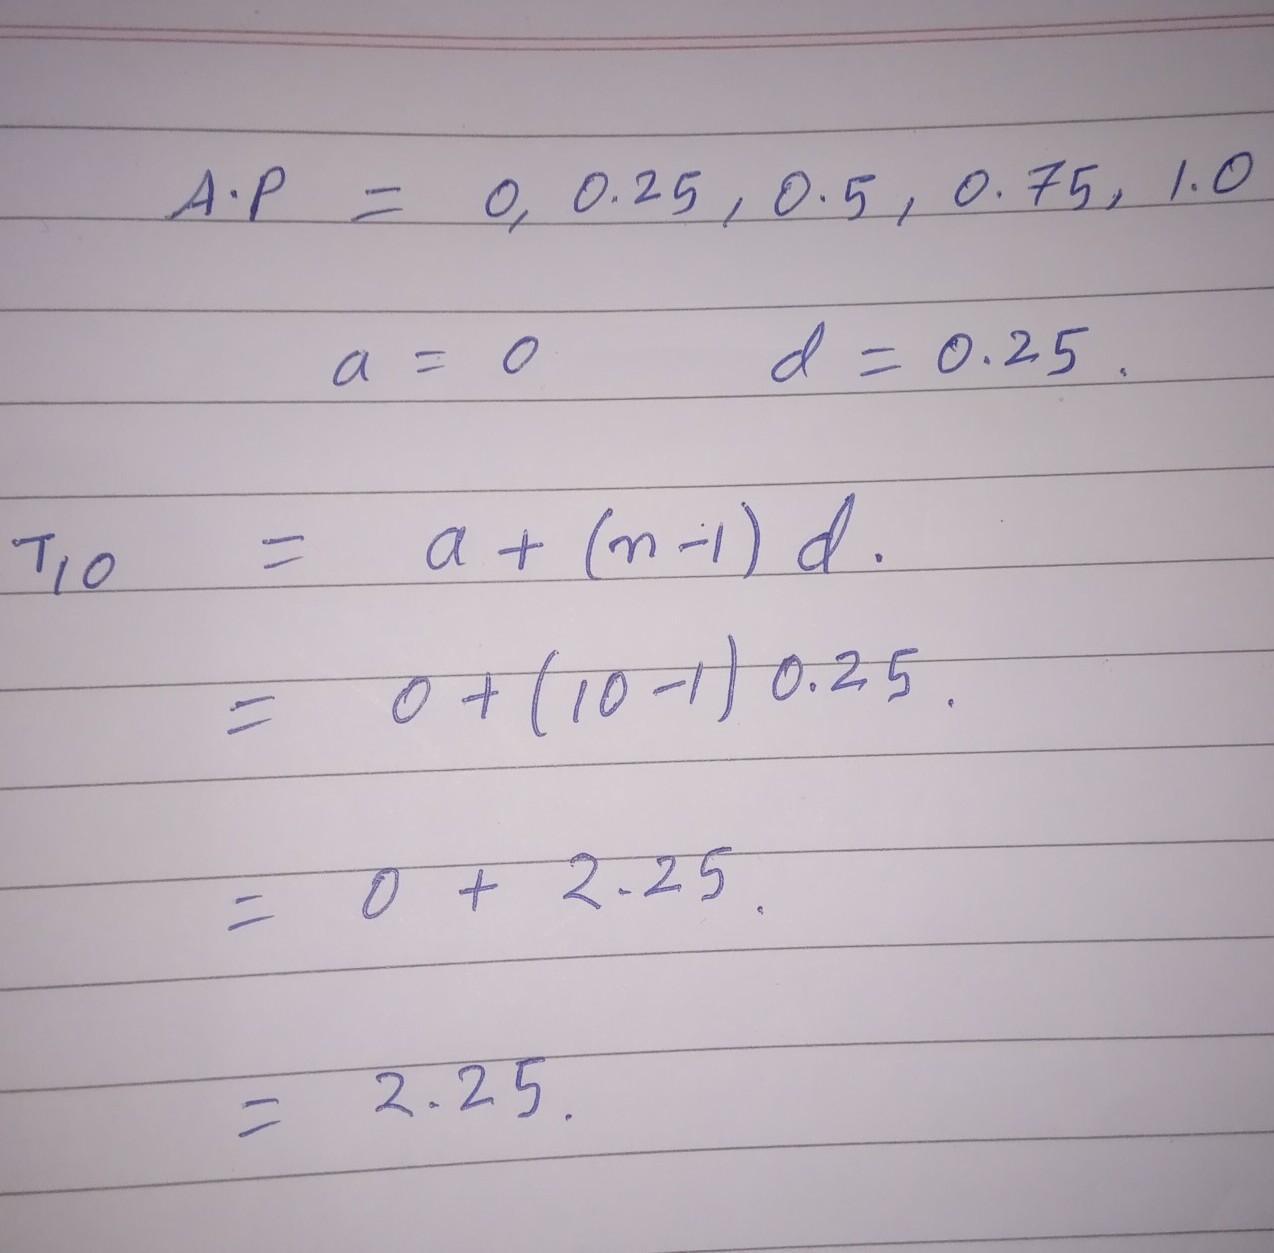 A.P = 0, 0.25, 0.5, 0.75, 1.0
a = 0 d = 0.25.
T10 = a + (n-1) d.
= 0 + (10-1) 0.25.
= 0 + 2.25.
= 2.25.